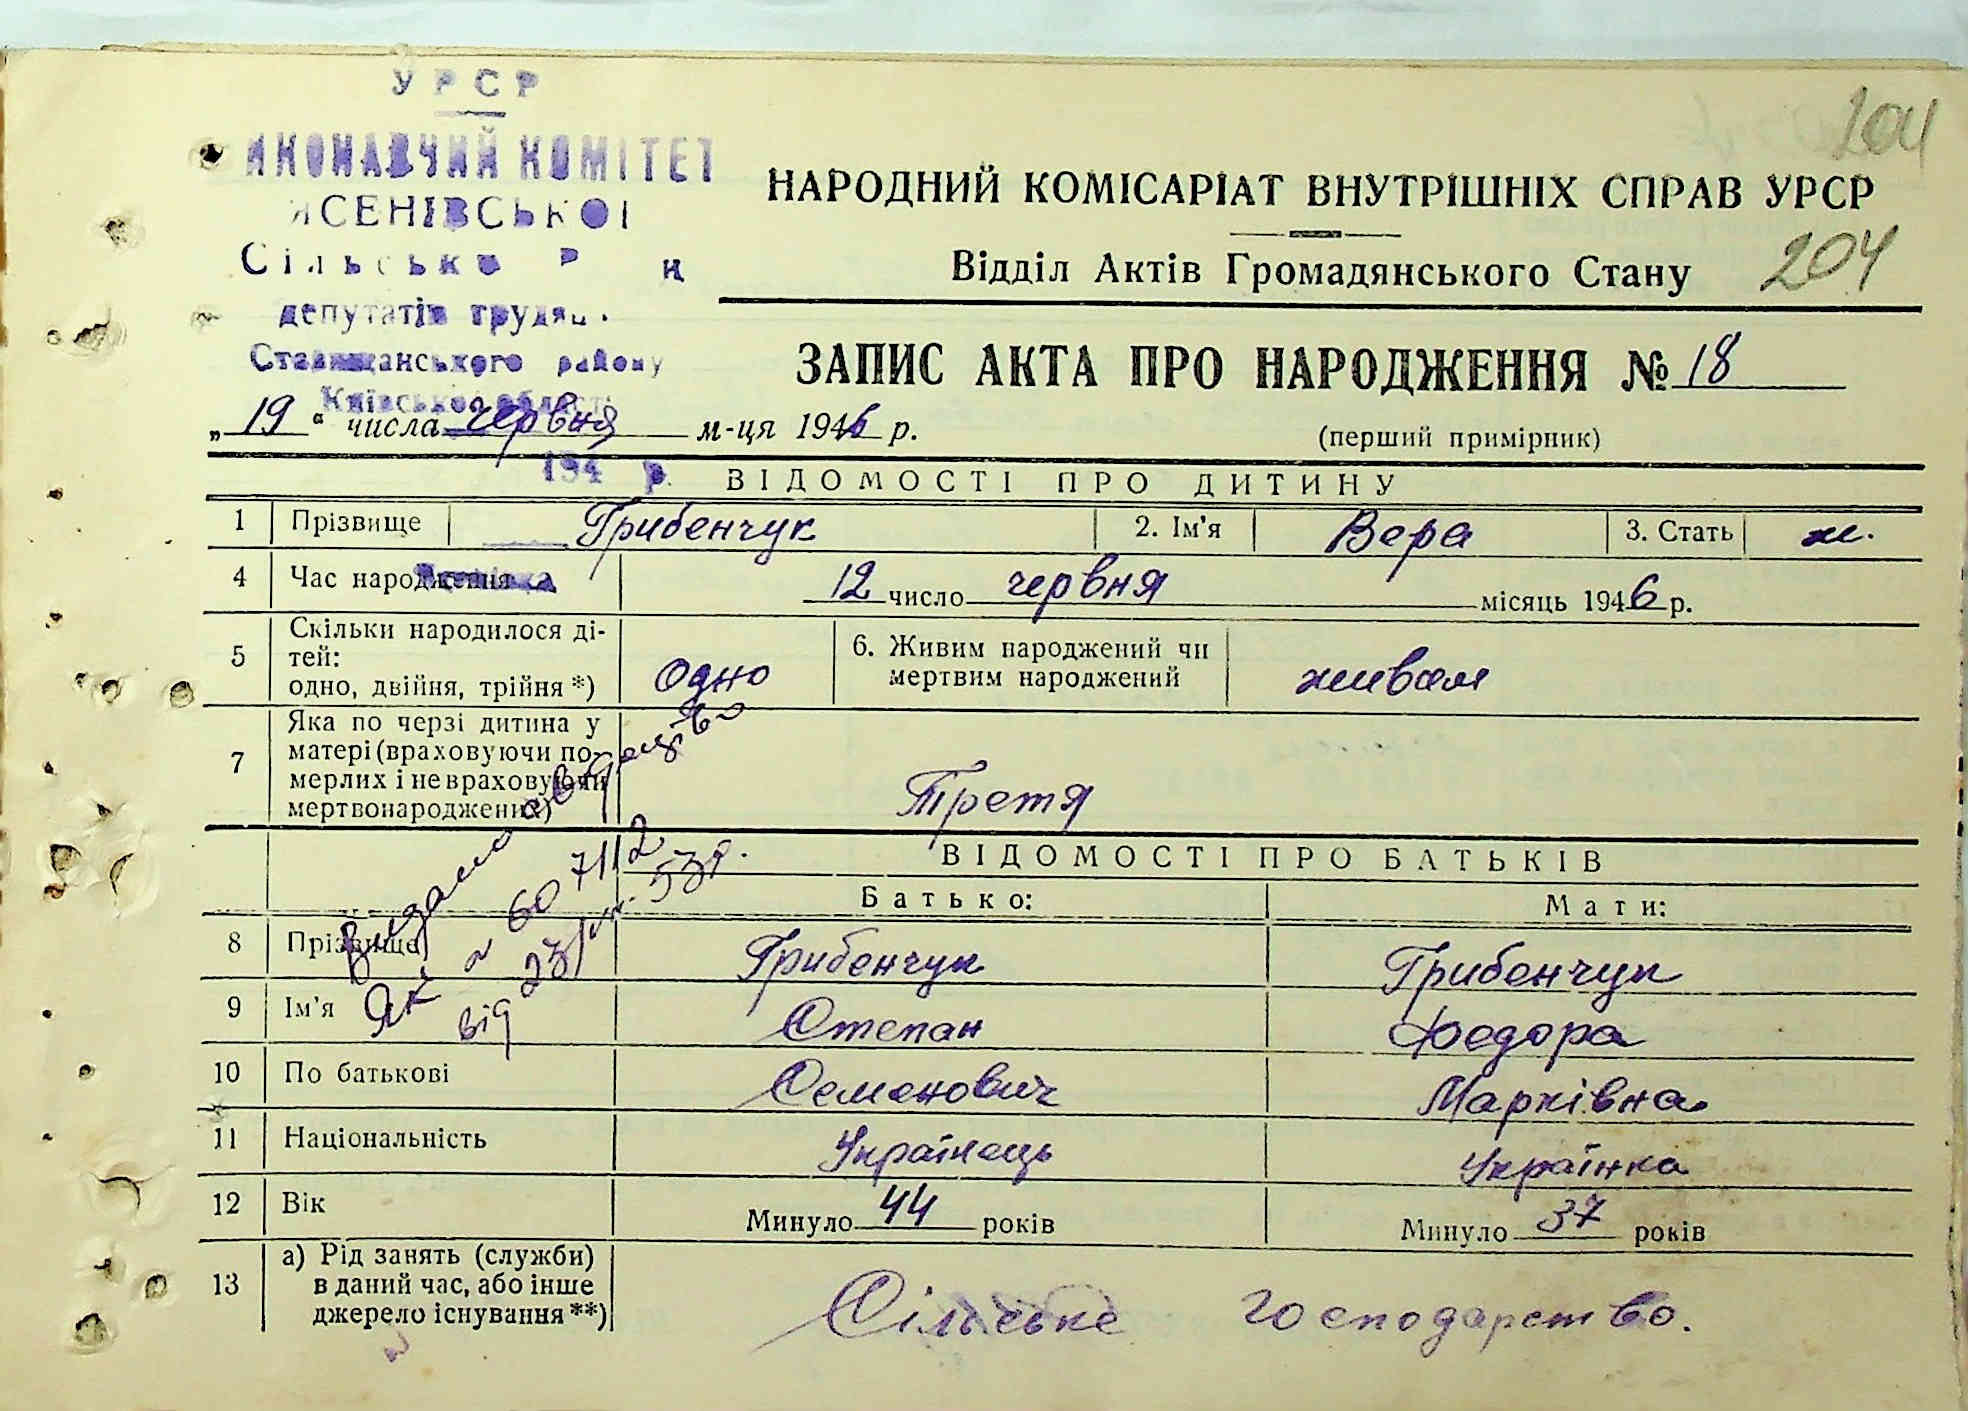 204
УРСР
ИКОНАВЧИЙ КОМІТЕТ
ЯСЕНІВСЬКОЇ
депутатів трудящ
Ставищанського району
Київської області
194 р.
НАРОДНИЙ КОМІСАРІАТ ВНУТРІШНІХ СПРАВ УРСР
Відділ Актів Громадянського Стану 204
ЗАПИС АКТА ПРО НАРОДЖЕННЯ № 18
„19“ числа червня м-ця 1946 р.
(перший примірник)
ВІДОМОСТІ ПРО ДИТИНУ
1 Прізвище Грибенчук 2. Ім'я Вера 3. Стать ж.
4 Час народження 12 число червня місяць 1946 р.
5 Скільки народилося дітей: одно, двійня, трійня *) Одно 6. Живим народжений чи мертвим народжений живом
7 Яка по черзі дитина у матері (враховуючи померлих і не враховуючи мертвонароджених) Третя
Видано свідоцтво
ЯК № 607112
від 23/ 53р.
ВІДОМОСТІ ПРО БАТЬКІВ
Батько: Мати:
8 Прізвище Грибенчук Грибенчук
9 Ім'я Степан Федора
10 По батькові Семенович Марківна
11 Національність Українець Українка
12 Вік Минуло 44 років Минуло 37 років
13 а) Рід занять (служби) в даний час, або інше джерело існування **) Сільське господарство.